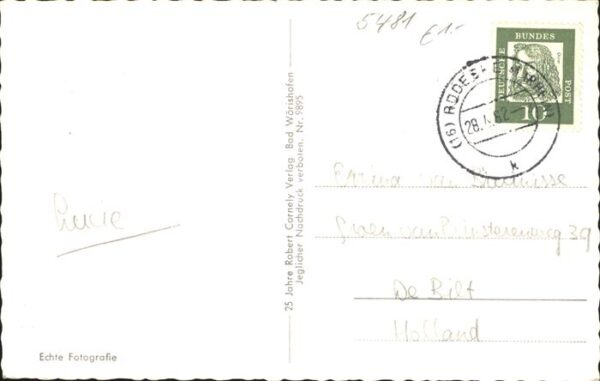 5481 £1.-
DEUTSCHE
BUNDES
POST
10
(16) RÜDESHEIM
28.4.62
k
van
Groen van Prinstererweg 39
De Bilt
Holland
Lucie
25 Jahre Robert Cornely Verlag Bad Wörishofen
Jeglicher Nachdruck verboten. Nr. 9895
Echte Fotografie